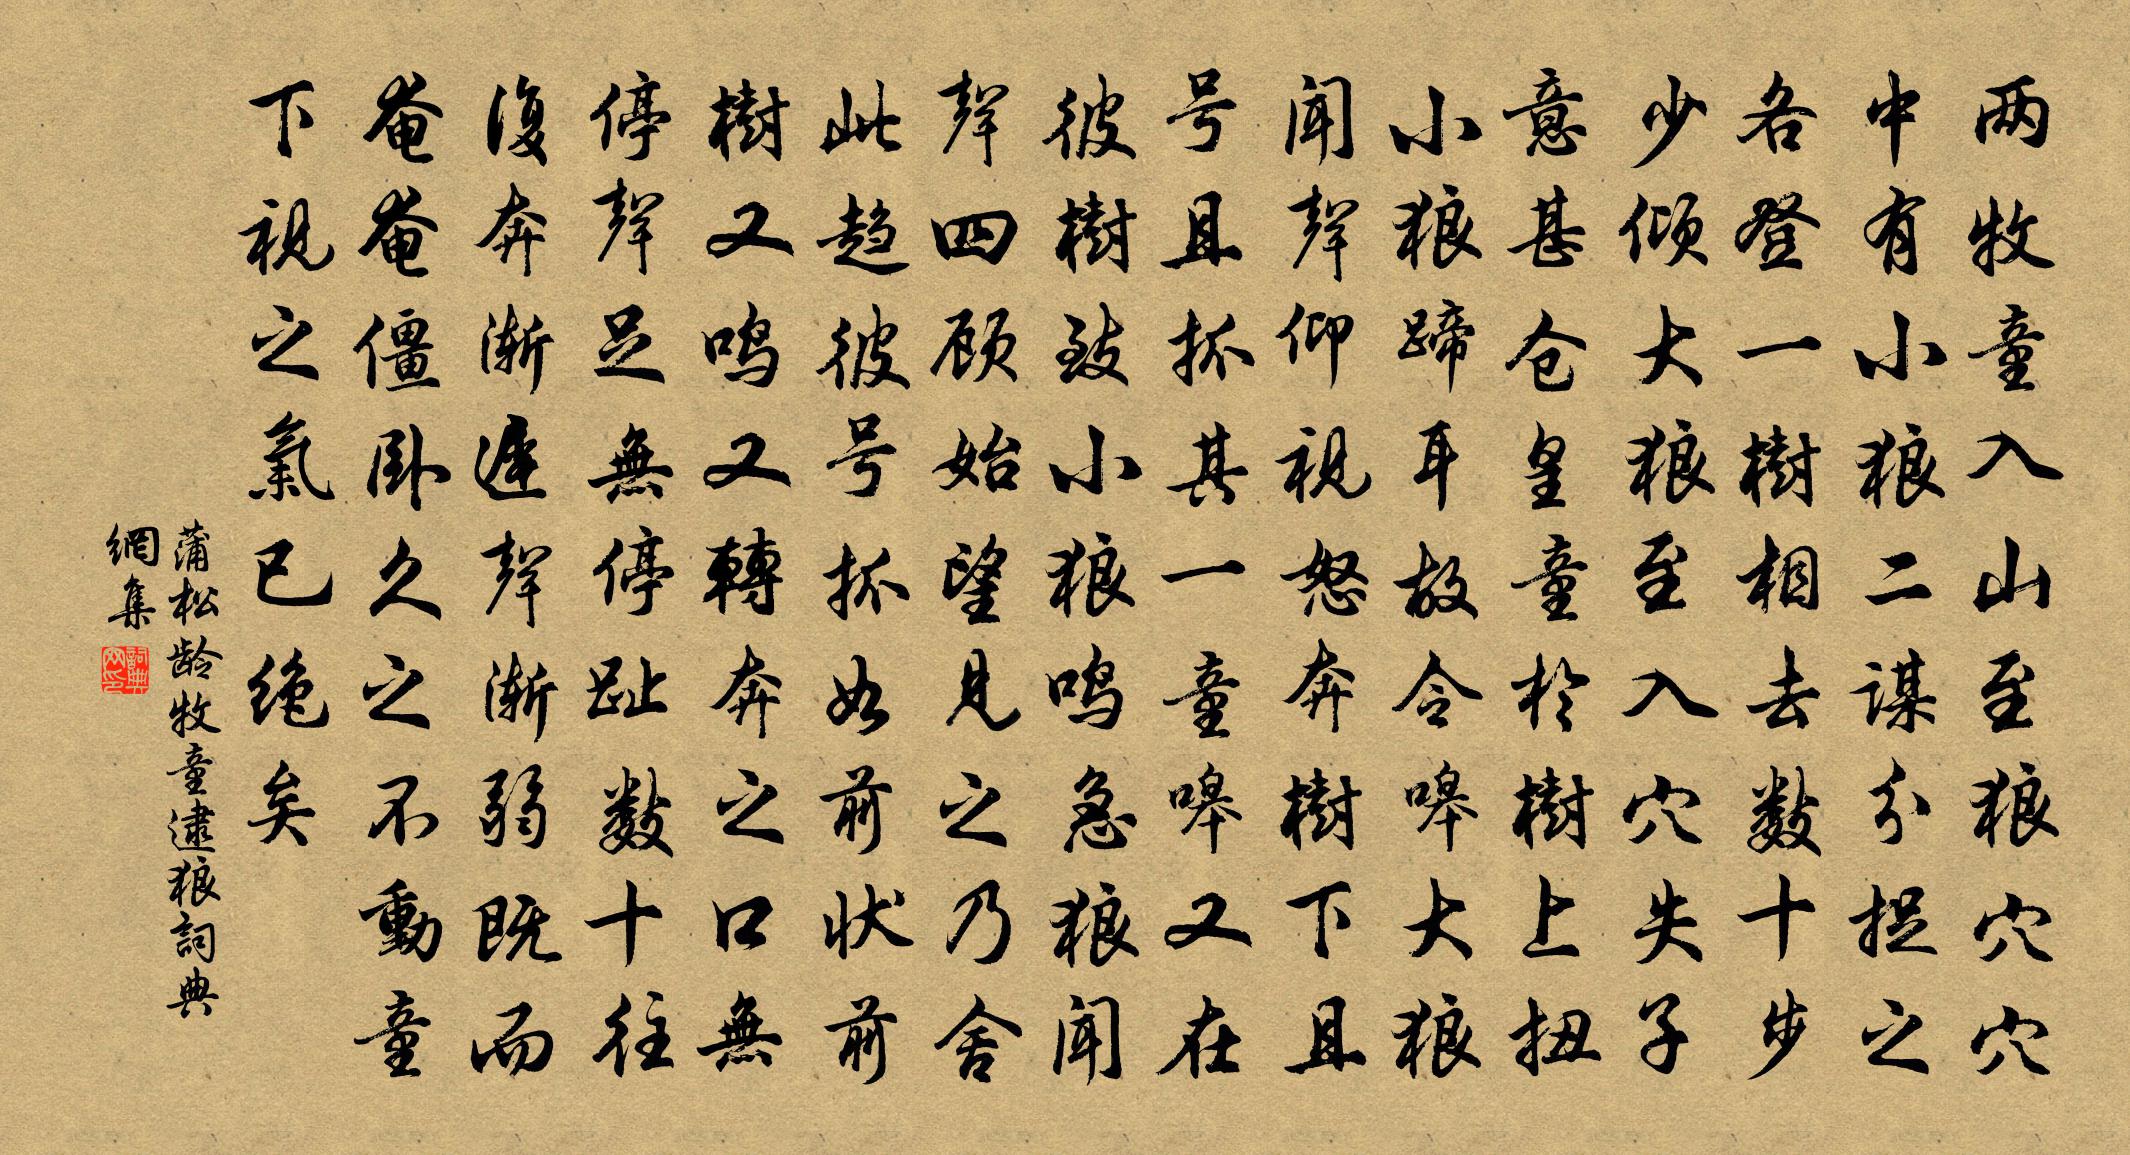 两牧童入山至狼穴穴
中有小狼二谋分捉之
各登一樹相去数十步
少倾大狼至入穴失子
意甚仓皇童於樹上扭
小狼蹄耳故令嗥大狼
闻聲仰视怒奔樹下且
号且抓其一童嗥又在
彼樹致小狼鸣急狼闻
聲四顾始望見之乃舍
此趋彼号抓如前状前
樹又鸣又轉奔之口無
停聲足無停趾数十往
復奔渐遲聲渐弱既而
奄奄僵卧久之不動童
下视之氣已绝矣
蒲松龄牧童逮狼詞典
網集
詞典
网印